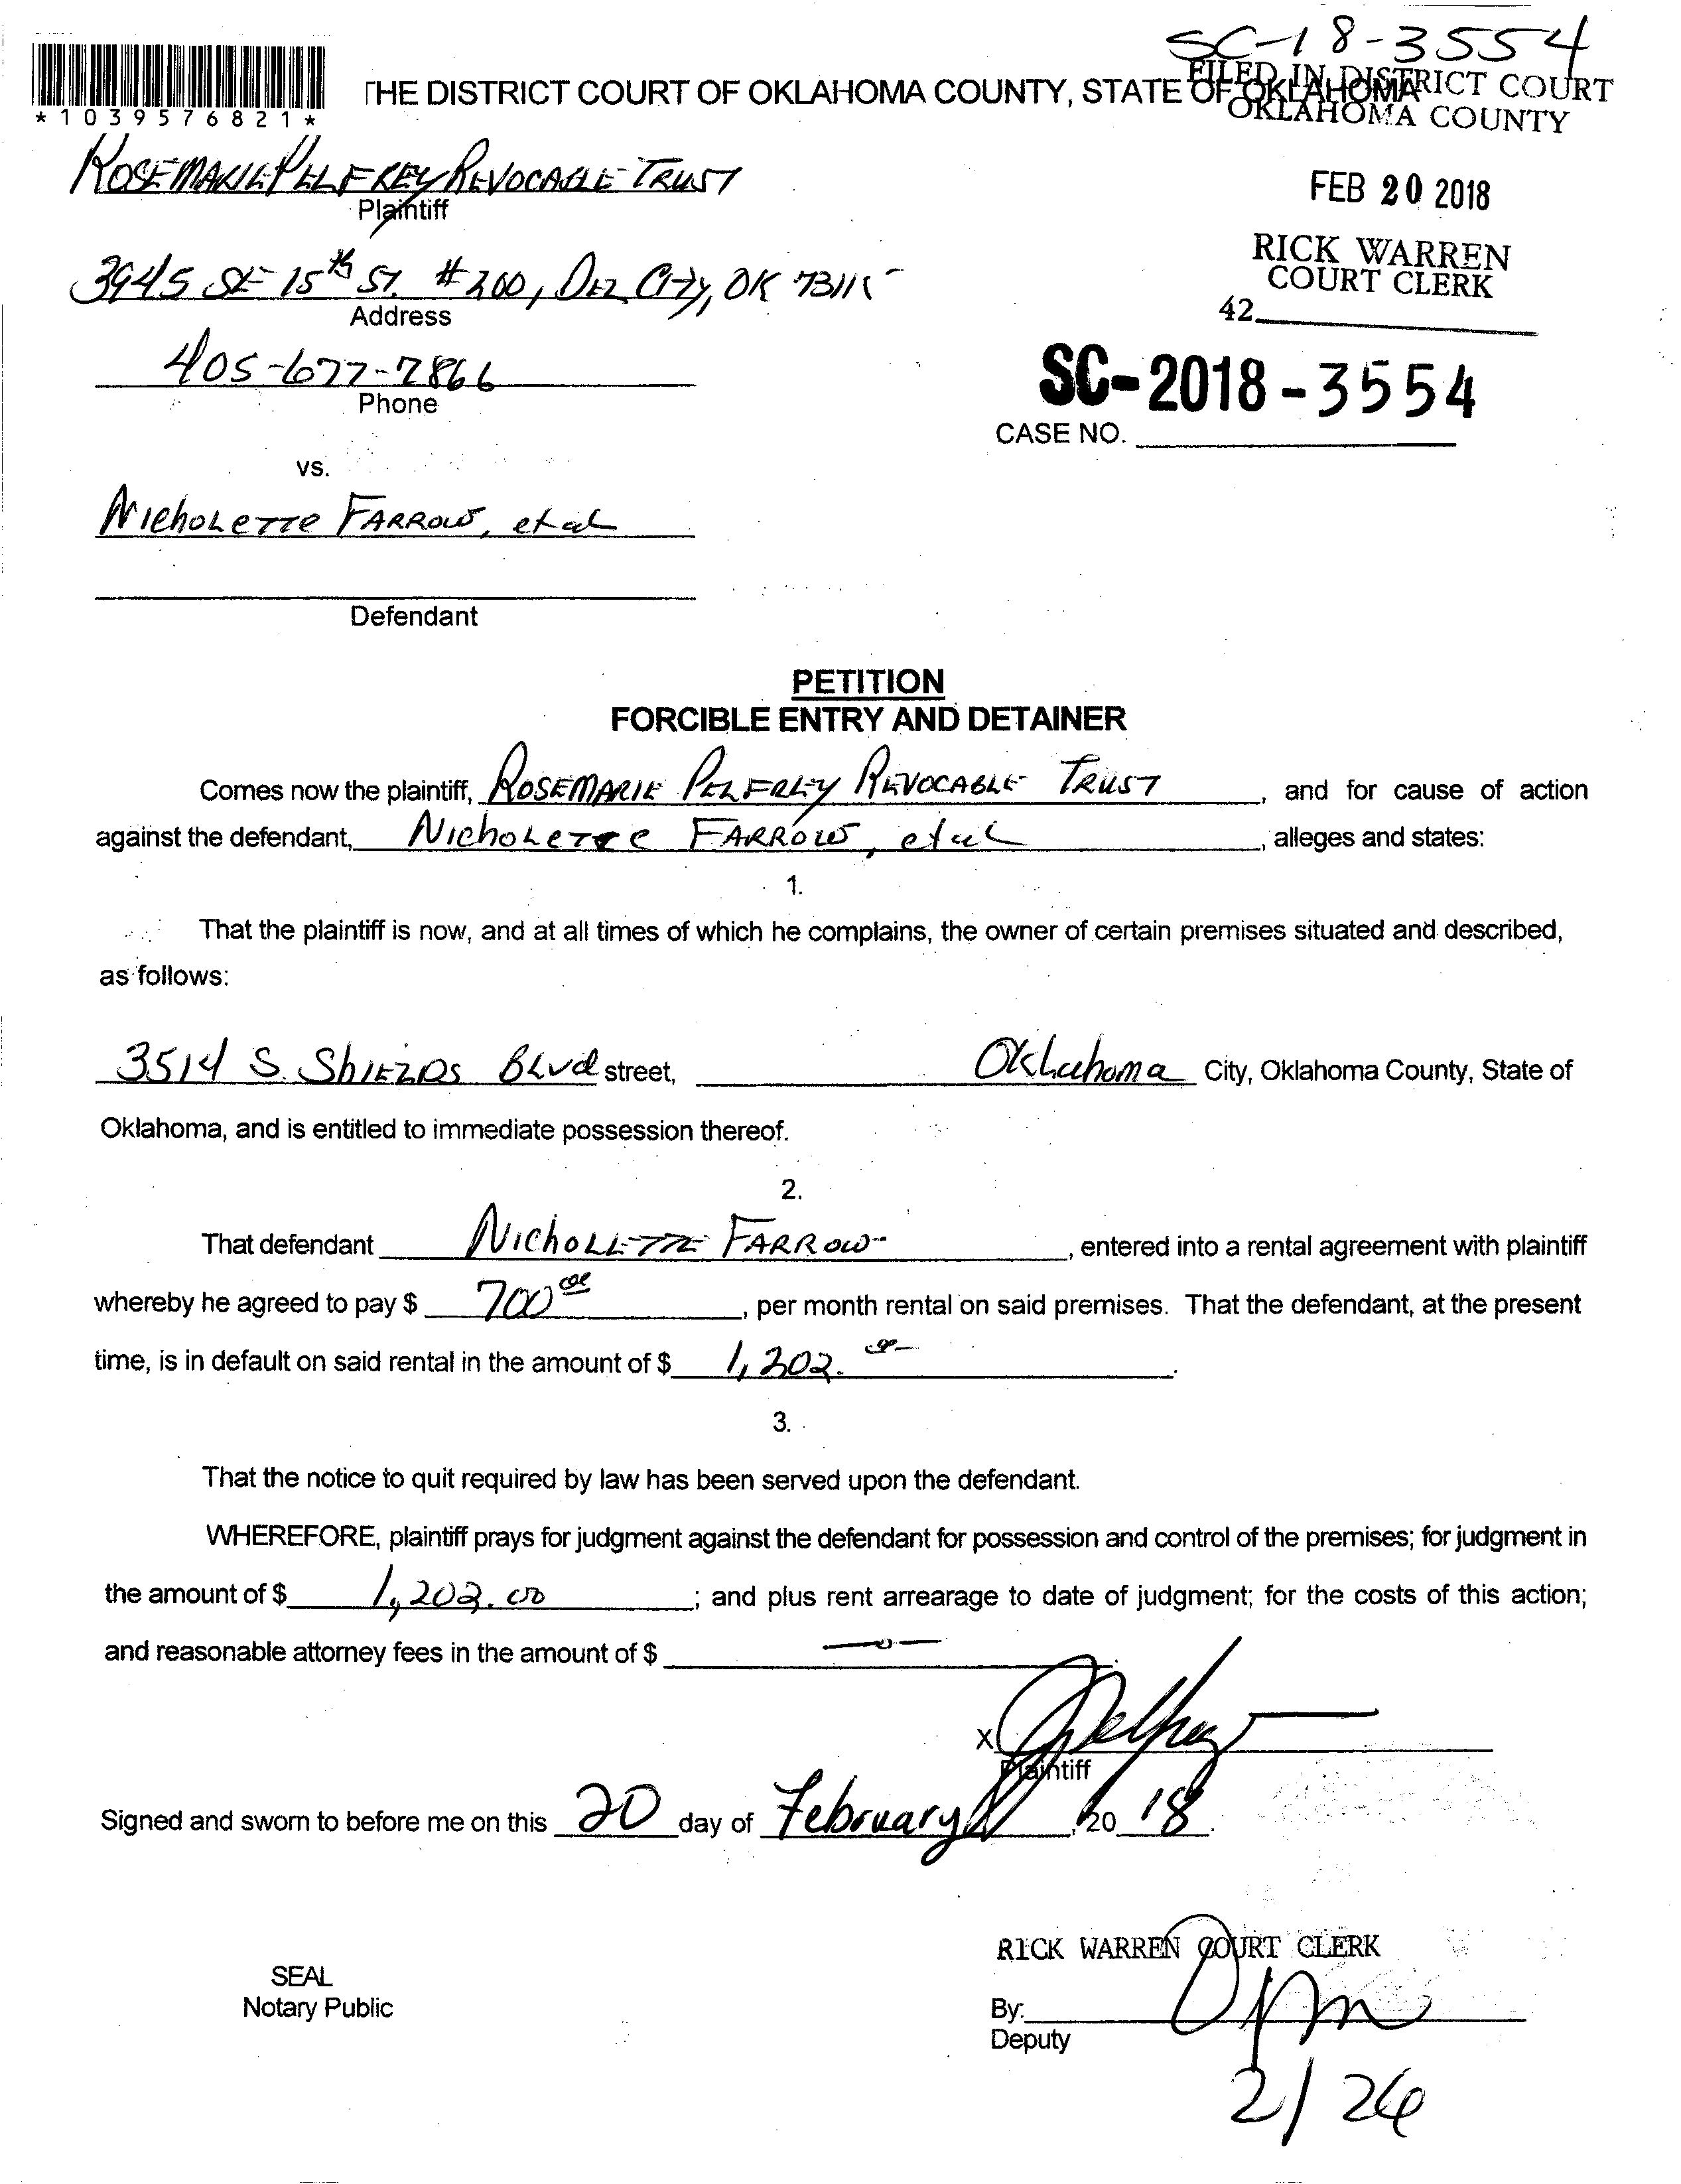 SC-18-3554
THE DISTRICT COURT OF OKLAHOMA COUNTY, STATE OF OKLAHOMA
FILED IN DISTRICT COURT
OKLAHOMA COUNTY
*1039576821*
ROSEMARIE PELFREY REVOCABLE TRUST
Plaintiff
FEB 20 2018
3945 SE 15th ST. #200, DEL City, OK 73115
Address
RICK WARREN
COURT CLERK
42
405-677-7866
Phone
SC-2018-3554
CASE NO.
vs.
NichoLette FARROW, et al
Defendant
PETITION
FORCIBLE ENTRY AND DETAINER
Comes now the plaintiff, ROSEMARIE PELFREY REVOCABLE TRUST, and for cause of action
against the defendant, NichoLette FARROW, et al, alleges and states:
1.
That the plaintiff is now, and at all times of which he complains, the owner of certain premises situated and described,
as follows:
3514 S. ShIELDS BLvd street, OkLahoma City, Oklahoma County, State of
Oklahoma, and is entitled to immediate possession thereof.
2.
That defendant NichOLETTE FARROW, entered into a rental agreement with plaintiff
whereby he agreed to pay $ 700 00, per month rental on said premises. That the defendant, at the present
time, is in default on said rental in the amount of $ 1,202. 00.
3.
That the notice to quit required by law has been served upon the defendant.
WHEREFORE, plaintiff prays for judgment against the defendant for possession and control of the premises; for judgment in
the amount of $ 1,202.00; and plus rent arrearage to date of judgment; for the costs of this action;
and reasonable attorney fees in the amount of $ -0-.
X Pelfrey
Plaintiff
Signed and sworn to before me on this 20 day of February, 20 18.
RICK WARREN COURT CLERK
SEAL
Notary Public
By:
Deputy
2/26